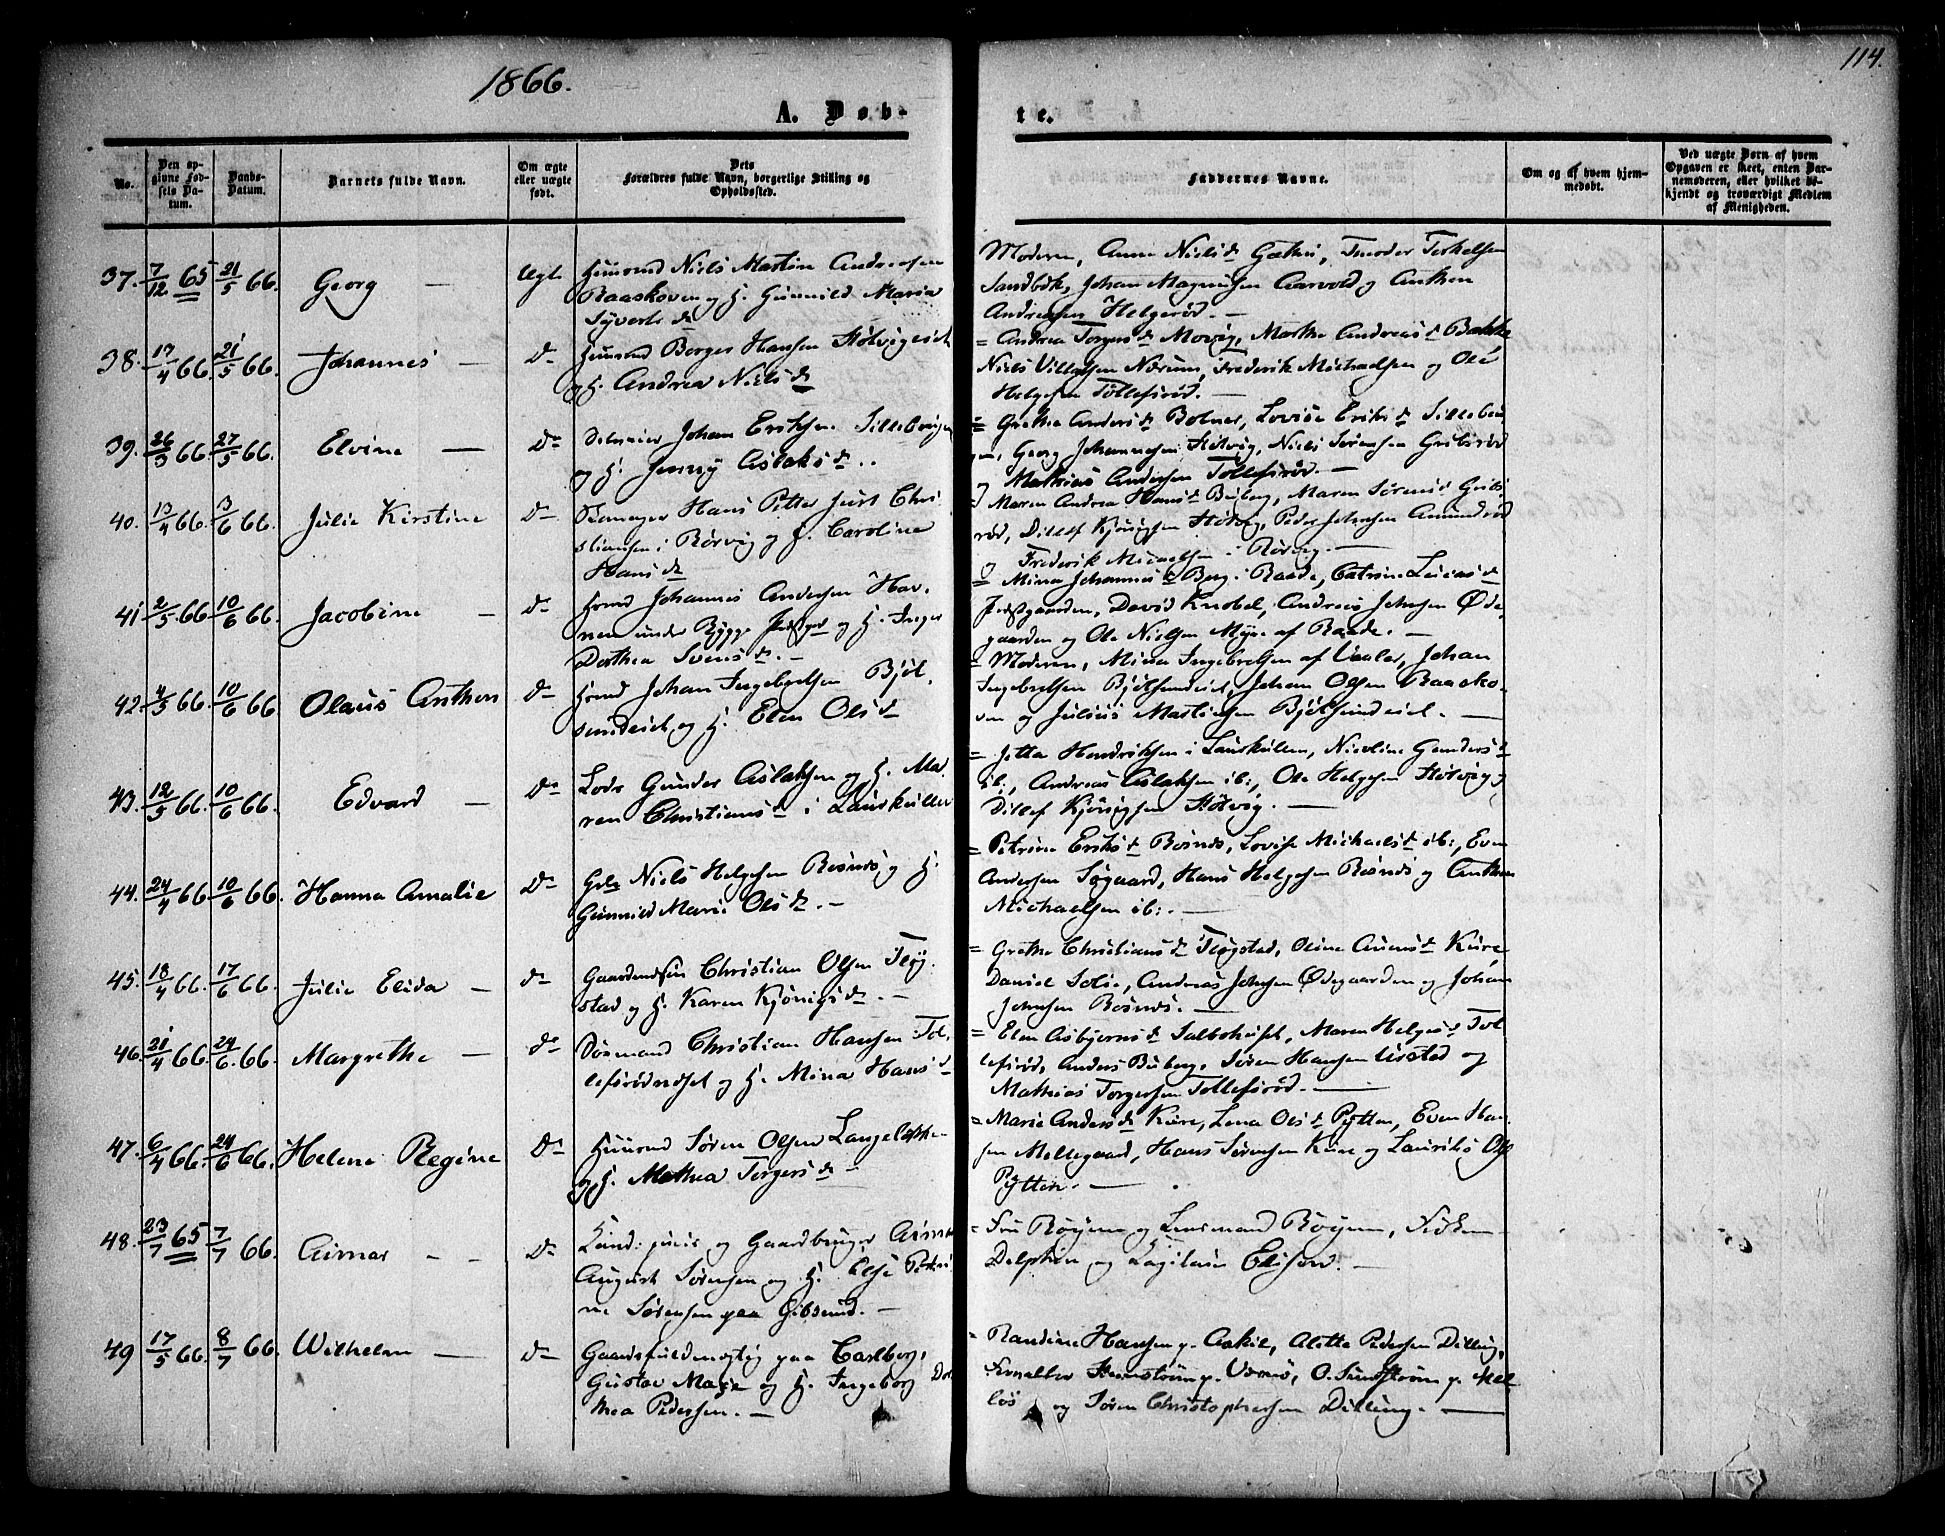 114.
1866.
A. Døb-
te.
No.
Den op-
givne Fød-
sels Da-
tum.
Daabs-
Datum.
Barnets fulde Navn.
Om ægte
eller uægte
født.
Dets
Forældres fulde Navn, borgerlige Stilling og
Opholdssted.
Faddernes Navne.
Om og af hvem hjem-
medøbt.
Ved uægte Børn af hvem
Opgaven er skeet, enten Bar-
nemoderen, eller hvilket be-
kjendt og troværdigt Medlem
af Menigheden.
37. 7/12 65 21/5 66. Georg — Ugt
Huusmd Niels Martin Andreasen
Raaskoven og H. Gunnild Maria
Syverts dr
Moderen, Anne Niels dr
Sandbæk, Johan Magnusen Aarvold og Anthon
Andreasen Helgerød. —
38. 17/4 66. 21/5 66. Johannes — Do
Huusmd Borger Hansen Støtvigeiet
og H. Andrea Niels dr
= Andrea Torgers dr Movig, Marthe Andreas dr Bakke
Niels Villassen Nærum, Frederik Michaelsen og Ole
Helgesen Tollefsrød. —
39. 26/3 66. 27/5 66. Elvine — Do
Johan Eriksen Sillebøigen
og H. Jenny Aslaks dr..
= Grethe Anders dr Bolner, Lovise Eriks dr Sillebøi
gen, Georg Johannesen Støtvig, Niels Sørensen Gribsrød
og Mathias Andersen Tollefsrød. —
40. 13/4 66. 3/6 66. Julie Kirstine Do
Hans Petter Just Chri-
stiansen i Rørvig og H. Caroline
Hans dr
= Maren Andrea Hans dr Buberg, Maren Sørens dr Gribs
rød, Ditlef Kjønigsen Støtvig, Peder Johnsen Amundrød
og Frederik Micaelsen i Rørvig. —
41. 2/5 66. 10/6 66. Jacobine — Do
Johannes Andersen Hav-
nen under Rygge Præstgrd og H. Inger
Dorthea Svens dr. —
= Mina Johannes dr Berg i Raade, Catrine
Præstgaarden, David Knobel, Andreas Johnsen Øde-
gaarden og Ole Nielsen Myre af Raade. —
42. 4/5 66. 10/6 66. Olaus Anthon Do
Johan Ingebretsen Bjøl-
sundeiet og H. Elen Ols dr
= Moderen, Mina Ingebretsen af Vaaler, Johan
Ingebretsen Bjølsundeiet, Johan Olsen Raasko-
ven og Julius Martinsen Bjølsundeiet. —
43. 12/5 66. 10/6 66. Edvard — Do
Lods Gunder Aslaksen og H. Ma-
ren Christians dr i Laurkullen
= Jetta Hendriksen i Laurkullen, Nicoline Gunders dr
ib:, Andreas Aslaksen ib:, Ole Helgesen Støtvig og
Ditlef Kjønigsen Støtvig. —
44. 24/4 66. 10/6 66. Hanna Amalie Do
Niels Helgesen Rosnæs og H.
Gunnild Marie Ols dr. —
= Petrine Eriks dr Rosnæs, Lovise Michaels dr ib:, Even
Andersen Søgaard, Hans Helgesen Rosnæs og Anthon
Michaelsen ib:. —
45. 18/4 66. 17/6 66. Julie Elida — Do
Gaardmdsøn Christian Olsen Fløy-
stad og H. Karen Kjønigs dr. —
= Grethe Christians dr Fløystad, Oline Aunes dr Kure
Daniel Solie, Andreas Johnsen Ødegaarden og Johan
Johnsen Rosnæs. —
46. 21/4 66. 24/6 66. Margrethe — Do
Sømand Christian Hansen Tol-
lefsrødødset og H. Mina Hans dr
= Elen Asbjørns dr Saltboholset, Maren Helges dr Tol
lefsrød, Anders Buberg, Søren Hansen og
Mathias Torgersen Tollefsrød. —
47. 6/4 66. 24/6 66. Helene Regine Do
Huusmd Søren Olsen Langeløkken
og H. Mathea Torgers dr —
= Marie Anders dr Kure, Lena Ols dr Pytten, Even Han-
sen Mellegaard, Hans Sørensen Kure og Lauritz Ols
Pytten. —
48. 23/7 65 7/7 66. Aimar — Do
Kand: juris og Gaardbruger Aimar
August Sørensen og H. Else Petri
ne Sørensen paa Gibsund. —
= Fru Røyem og Lensmand Røyem, Frøken
Delphin og Elisen. —
49 17/5 66. 8/7 66. Wilhelm — Do
Gaardsfuldmægtig paa Carlberg,
Gustav Marje og H. Ingeborg Dor
thea Pedersen. —
= Randine Hansen p. Askil, Alette Pedersen Dilling,
p. Værnø, O. Sundstrøm p. Mel-
løs og Søren Christophersen Dilling. —